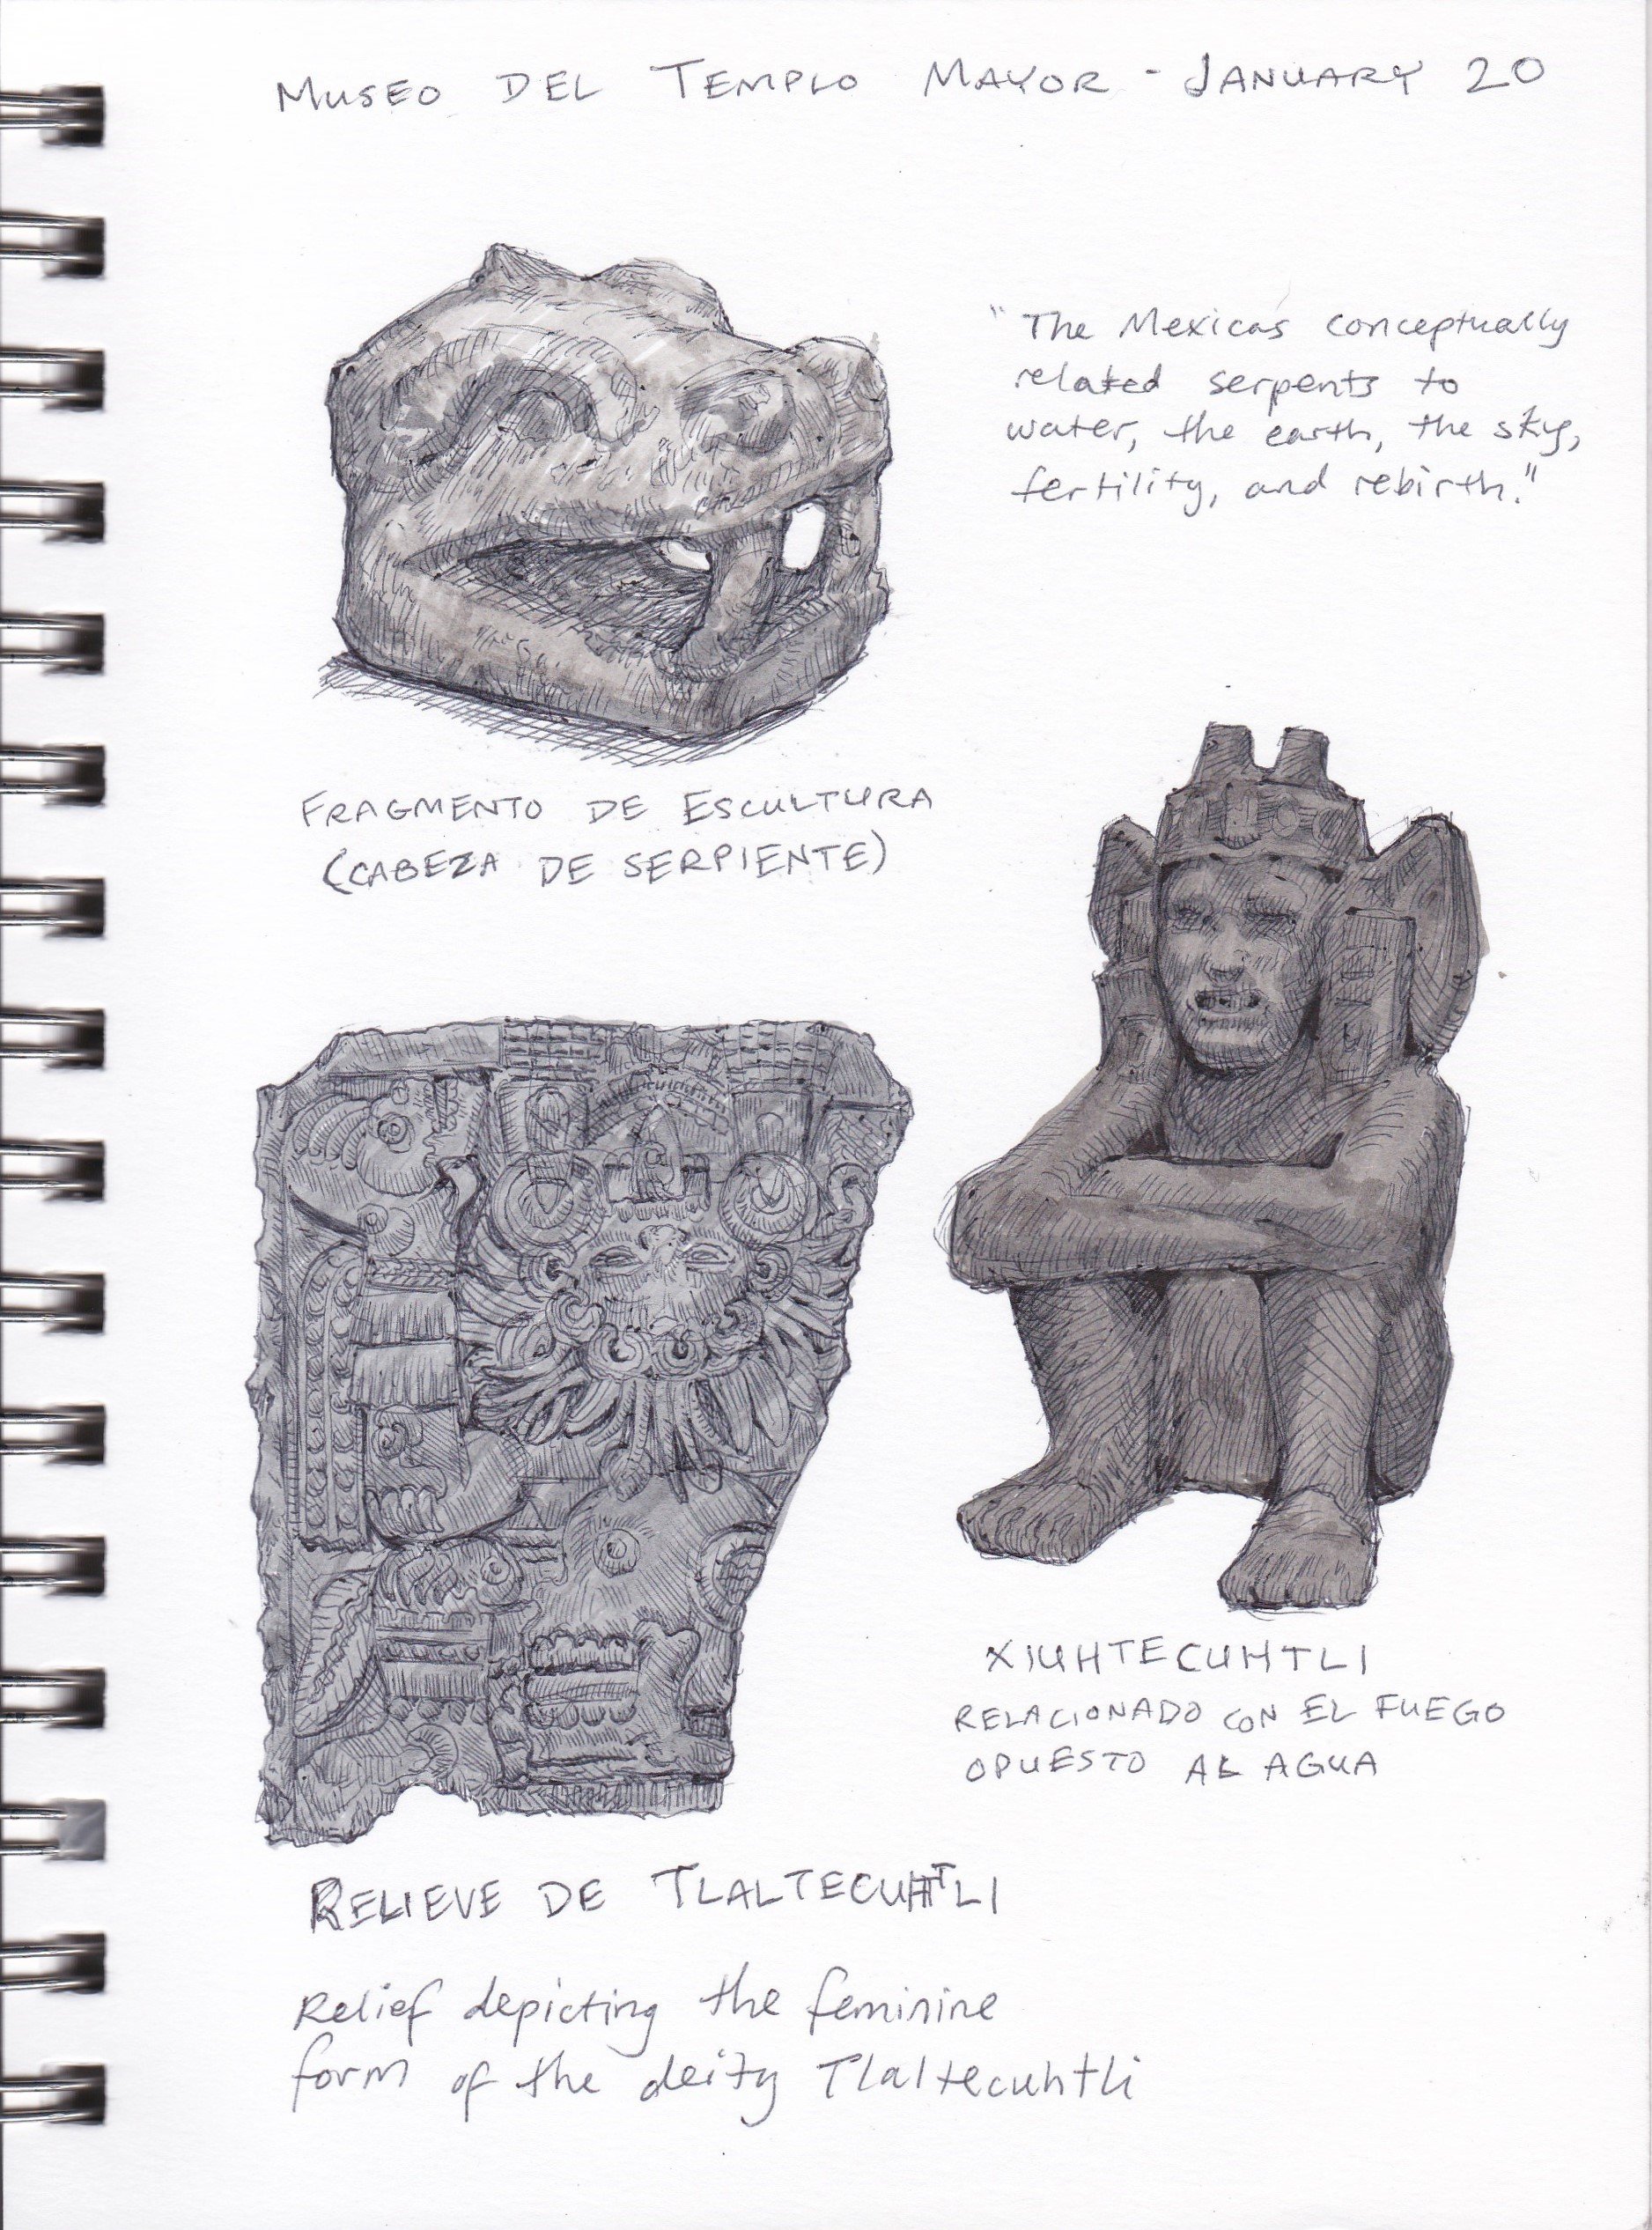 MUSEO DEL TEMPLO MAYOR - JANUARY 20
"The Mexicas conceptually
related serpents to
water, the earth, the sky,
fertility, and rebirth."
FRAGMENTO DE ESCULTURA
(CABEZA DE SERPIENTE)
XIUHTECUHTLI
RELACIONADO CON EL FUEGO
OPUESTO AL AGUA
RELIEVE DE TLALTECUHTLI
Relief depicting the feminine
form of the deity Tlaltecuhtli